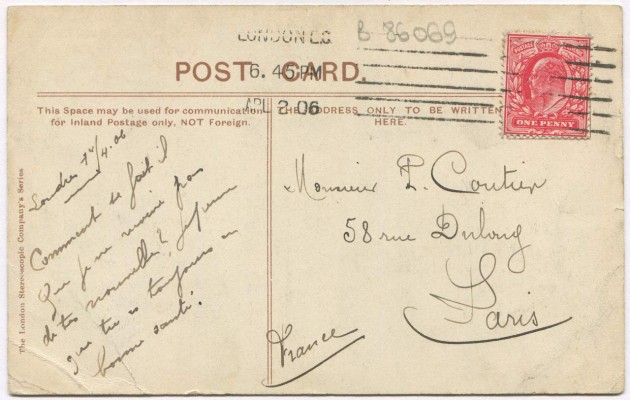 B 86069
LONDON E.C
6.45 PM
APL 2 06
POST CARD.
This Space may be used for communication
for Inland Postage only, NOT Foreign.
THE ADDRESS ONLY TO BE WRITTEN
HERE.
POSTAGE
ONE PENNY
The London Stereoscopic Company's Series
Londres
4.06
Comment se fait il
que je ne reçoive pas
de tes nouvelles?
que tu es toujours en
bonne santé.
Monsieur P. Coutier
58 rue Dulong
Paris
France